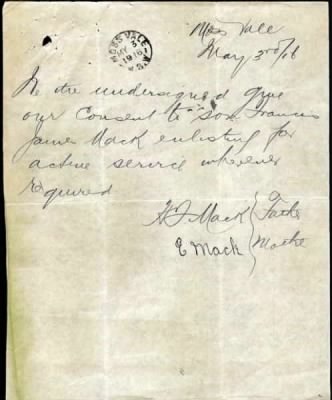 Moss Vale
May 3rd/16
MOSS VALE
MY 3
1916
N.S.W
We the undersigned give
our Consent to son Francis
James Mack enlisting for
active service wherever
required
Mack } Father
E Mack } Mother